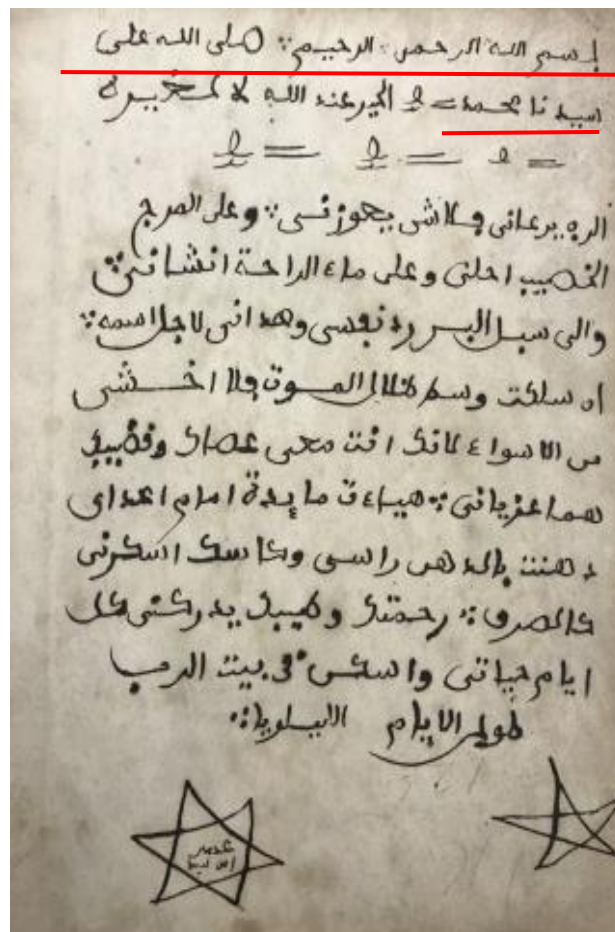 بسم الله الرحمن الرحيم صلى الله على
سيدنا محمد الخير عند الله لا لغيره
الرب يرعانى فلاشى يعوزنى وعلى المرج
الخصيب احلنى وعلى ماء الراحة انشانى
والى سبل البر رد نفسى وهدانى لاجل اسمه
ان سلكت وسط ظلال الموت فلا اخشى
من الاسواء لانك انت معى عصاك وقضيبك
هما عزيانى هياءت مايدة امام اعداى
دهنت بالدهن راسى وكاسك اسكرنى
كالصرف رحمتك وطيبك يدركنى كل
ايام حياتى واسكن فى بيت الرب
طول الايام الليلويا